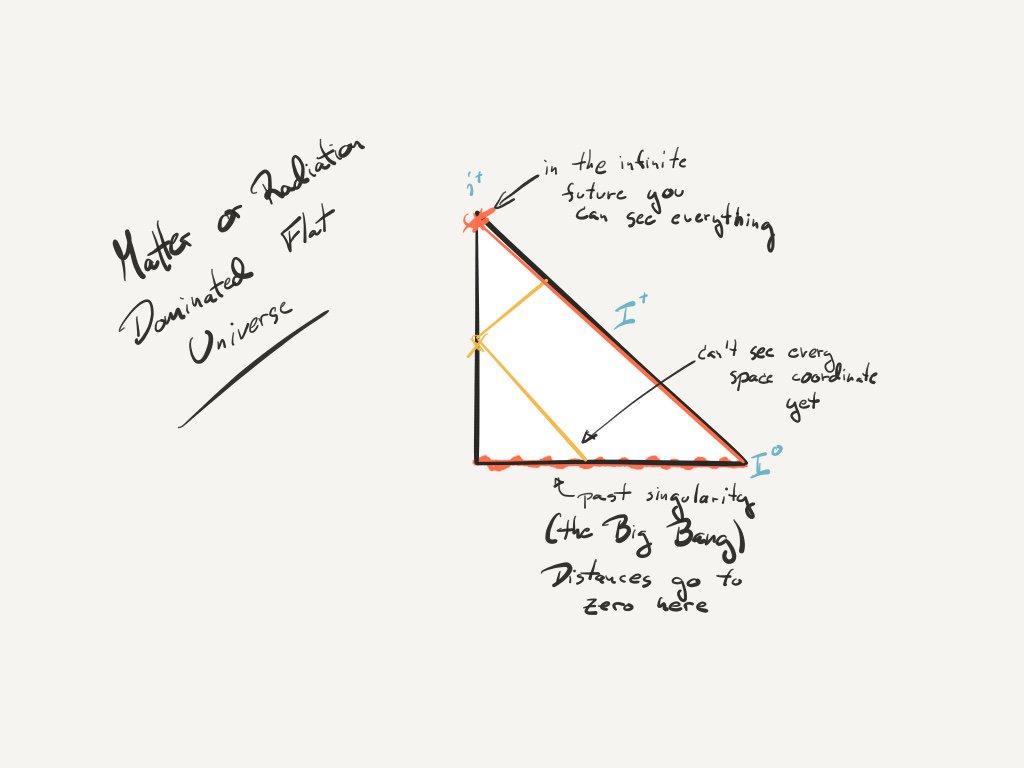 Matter or Radiation
Dominated Flat
Universe
i+
in the infinite
future you
can see everything
I+
can't see every
space coordinate
yet
I0
past singularity
(the Big Bang)
Distances go to
zero here